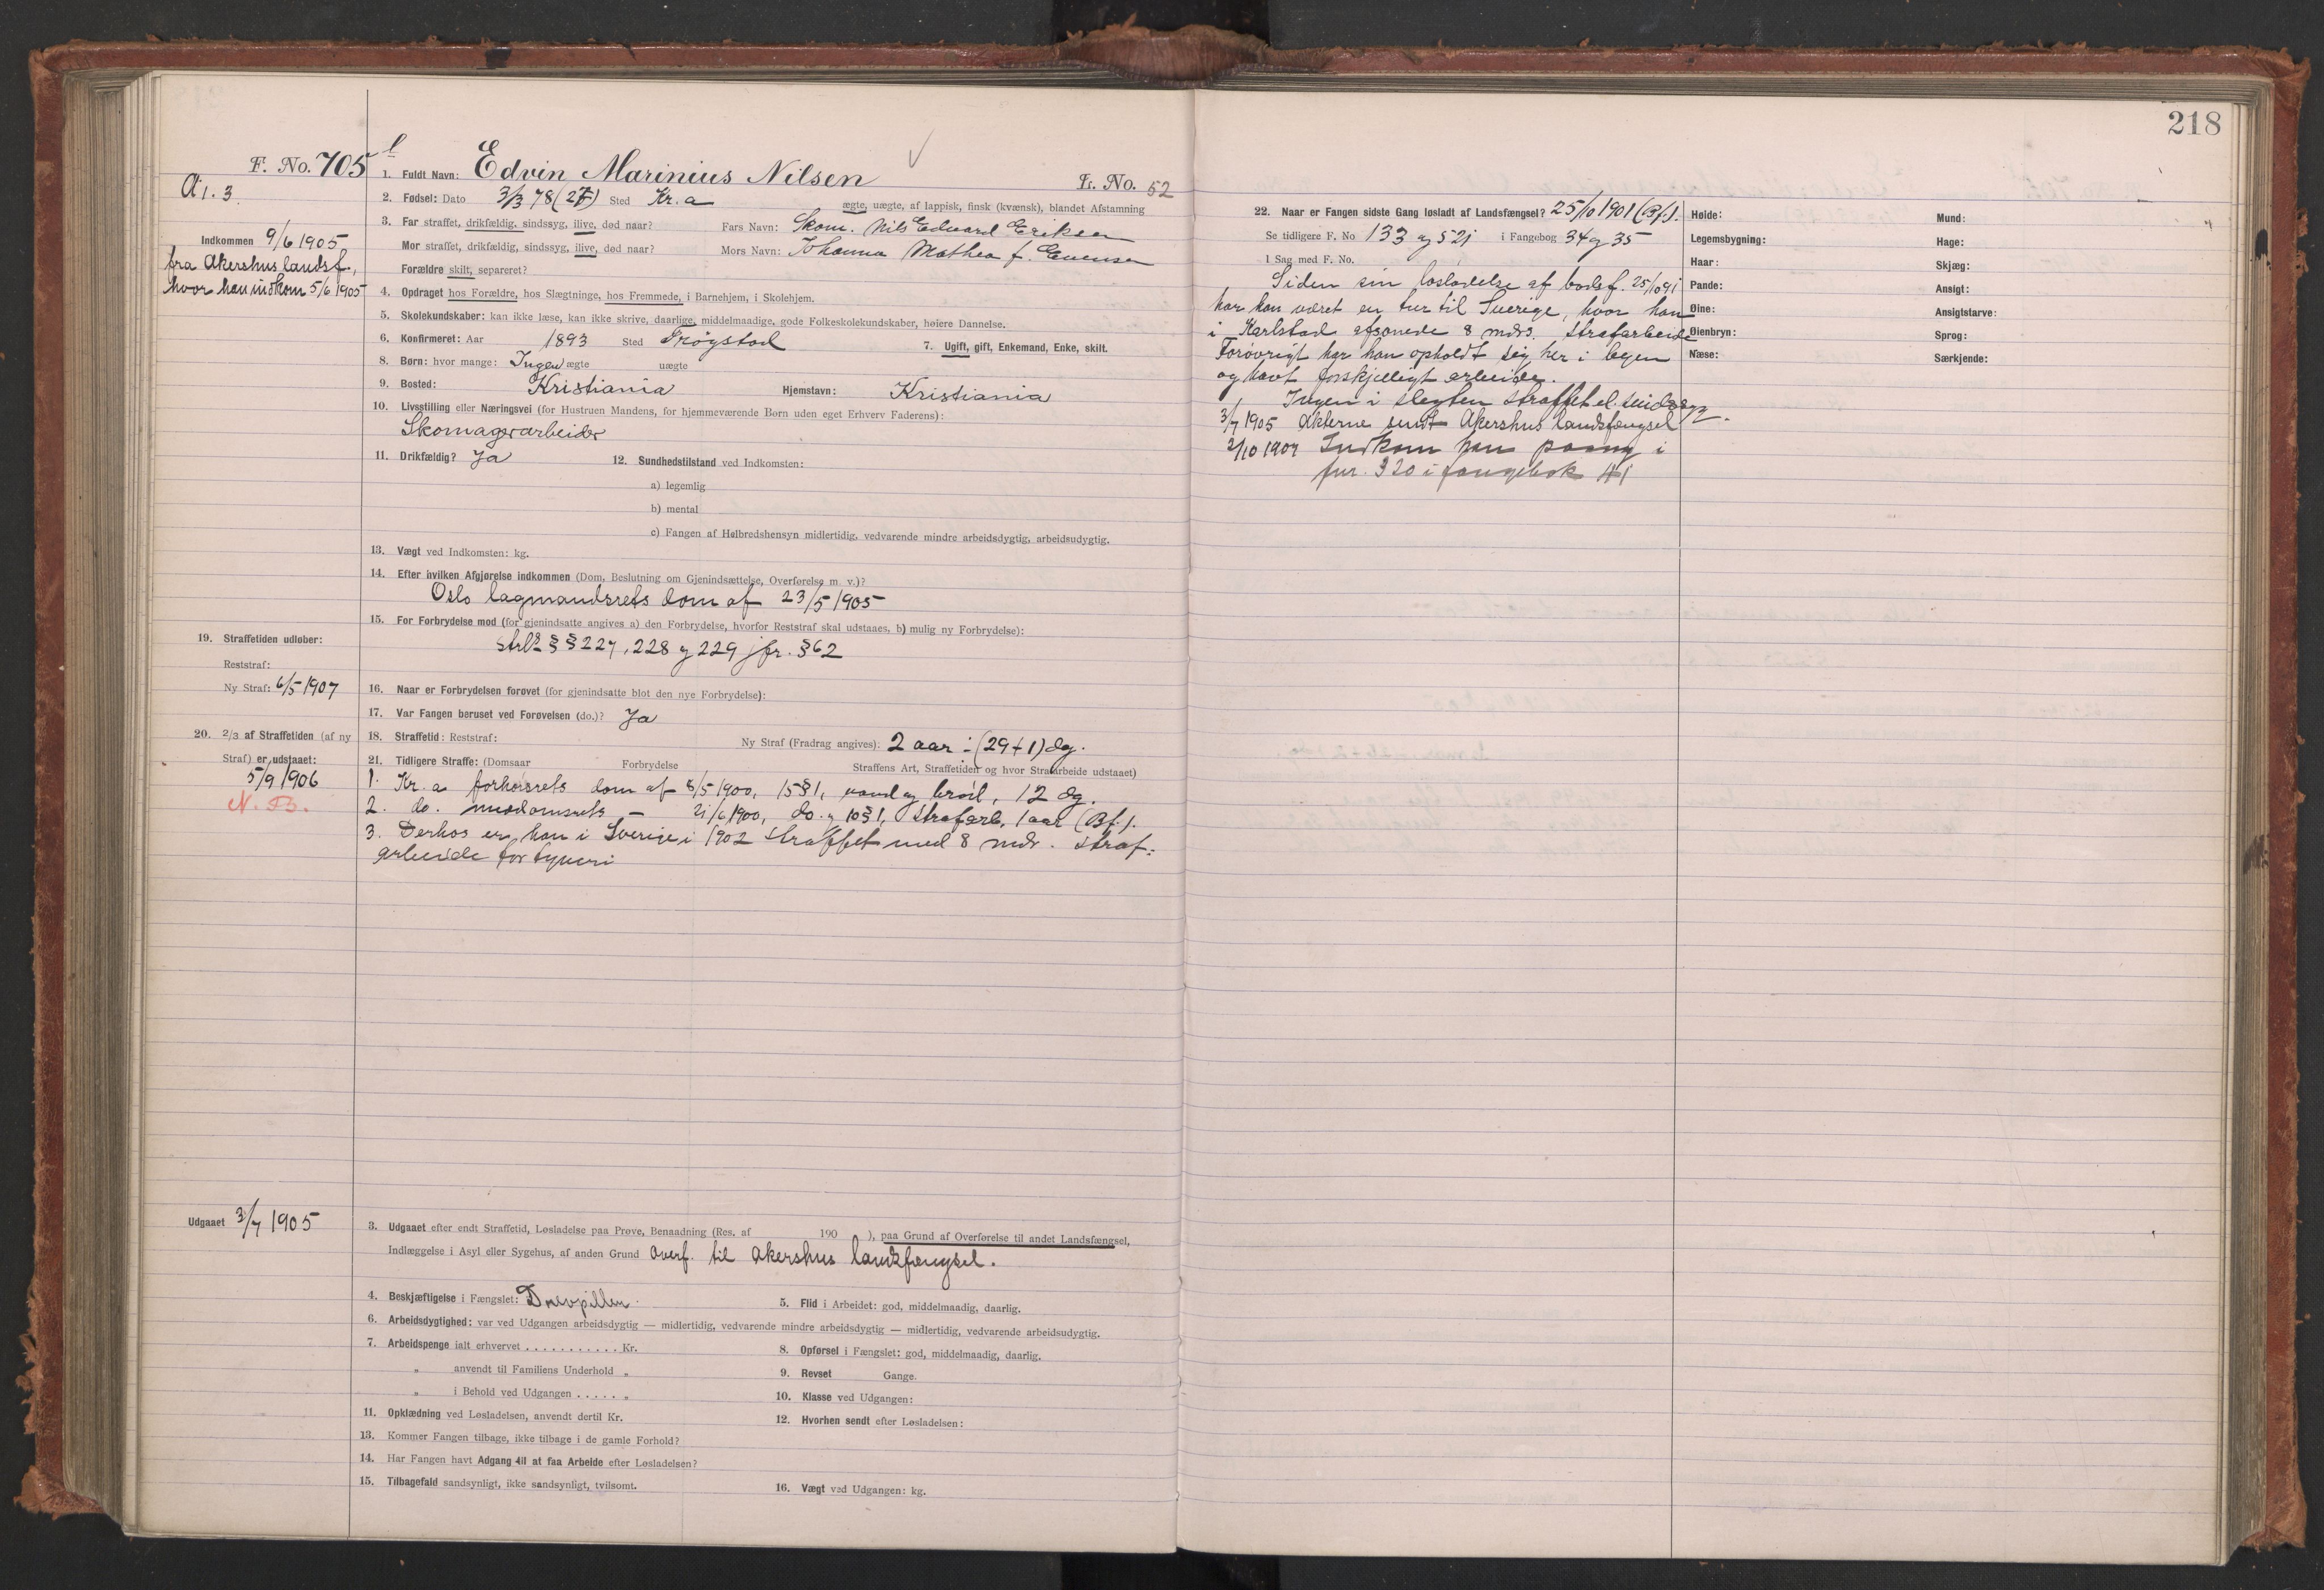 218
F. No. 705
1. Fuldt Navn: Edvin Marinius Nilsen
Fr. No. 52
A 1. 3
2. Fødsel: Dato 3/3 78 (27) Sted Kr.a
ægte, uægte, af lappisk, finsk (kvænsk), blandet Afstamning
Indkommen 9/6 1905
fra Akershus landsf.,
hvor han indkom 5/6 1905
3. Far straffet, drikfældig, sindssyg, ilive, død naar? Fars Navn: Skom. Nils Edvard Eriksen
Mor straffet, drikfældig, sindssyg, ilive, død naar? Mors Navn: Johanna Mathea f. Evensen
Forældre skilt, separeret?
4. Opdraget hos Forældre, hos Slægtninge, hos Fremmede, i Barnehjem, i Skolehjem.
5. Skolekundskaber: kan ikke læse, kan ikke skrive, daarlige, middelmaadige, gode Folkeskolekundskaber, høiere Dannelse.
6. Konfirmeret: Aar 1893 Sted Trøgstad 7. Ugift, gift, Enkemand, Enke, skilt.
8. Børn: hvor mange: Ingen ægte uægte
9. Bosted: Kristiania Hjemstavn: Kristiania
10. Livsstilling eller Næringsvei (for Hustruen Mandens, for hjemmeværende Børn uden eget Erhverv Faderens):
Skomagerarbeider
11. Drikfældig? Ja 12. Sundhedstilstand ved Indkomsten:
a) legemlig
b) mental
c) Fangen af Helbredshensyn midlertidig, vedvarende mindre arbeidsdygtig, arbeidsudygtig.
13. Vægt ved Indkomsten: kg.
14. Efter hvilken Afgjørelse indkommen (Dom, Beslutning om Gjenindsættelse, Overførelse m. v.)?
Oslo lagmandsrets dom af 23/5 1905
15. For Forbrydelse mod (for gjenindsatte angives a) den Forbrydelse, hvorfor Reststraf skal udstaaes, b) mulig ny Forbrydelse):
§§ 227, 228 g 229 jfr. § 62
19. Straffetiden udløber:
Reststraf:
Ny Straf: 6/5 1907
16. Naar er Forbrydelsen forøvet (for gjenindsatte blot den nye Forbrydelse):
17. Var Fangen beruset ved Forøvelsen (do.)? Ja
20. 2/3 af Straffetiden (af ny
Straf) er udstaaet:
5/9 1906
N. B.
18. Straffetid: Reststraf: Ny Straf (Fradrag angives): 2 aar ÷ (29 + 1) dg.
21. Tidligere Straffe: (Domsaar Forbrydelse Straffens Art, Straffetiden og hvor Strafarbeide udstaaet)
1. Kr.a forhørsrets dom af 8/5 1900, 15 § 1, vand og brød, 12 dg.
2. do. meddomsrets — 21/6 1900, do. g 10 § 1, Strafarb. 1 aar (Bf.).
3. Derhos er han i Sverige i 1902 straffet med 8 mdr. straf=
arbeide for tyveri
Udgaaet 3/7 1905
3. Udgaaet efter endt Straffetid, Løsladelse paa Prøve, Benaadning (Res. af 190 ), paa Grund af Overførelse til andet Landsfængsel,
Indlæggelse i Asyl eller Sygehus, af anden Grund overf. til Akershus landsfængsel.
4. Beskjæftigelse i Fængslet: Drevpiller 5. Flid i Arbeidet: god, middelmaadig, daarlig.
6. Arbeidsdygtighed: var ved Udgangen arbeidsdygtig — midlertidig, vedvarende mindre arbeidsdygtig — midlertidig, vedvarende arbeidsudygtig.
7. Arbeidspenge ialt erhvervet . . . . . . . . . . . Kr. 8. Opførsel i Fængslet: god, middelmaadig, daarlig.
„ anvendt til Familiens Underhold „ 9. Revset Gange.
„ i Behold ved Udgangen . . . . . „ 10. Klasse ved Udgangen:
11. Opklædning ved Løsladelsen, anvendt dertil Kr. 12. Hvorhen sendt efter Løsladelsen:
13. Kommer Fangen tilbage, ikke tilbage i de gamle Forhold?
14. Har Fangen havt Adgang til at faa Arbeide efter Løsladelsen?
15. Tilbagefald sandsynligt, ikke sandsynligt, tvilsomt. 16. Vægt ved Udgangen: kg.
22. Naar er Fangen sidste Gang løsladt af Landsfængsel? 25/10 1901 (Bf.).
Se tidligere F. No 133 og 521 i Fangebog 34 g 35
I Sag med F. No.
Siden sin løsladelse af bodsf. 25/10 91
har han været en tur til Sverige, hvor han
i Karlstad afsonede 8 mdrs. strafarbeide
Forøvrigt har han opholdt sig her i byen
og havt forskjelligt arbeide.
Ingen i slegten straffet el. sindssyg.
3/7 1905 Akterne sendt Akershus landsfængsel
2/10 1907 Indkom han paany i
fnr. 320 i fangebok 41
Høide:
Legemsbygning:
Haar:
Pande:
Øine:
Øienbryn:
Næse:
Mund:
Hage:
Skjæg:
Ansigt:
Ansigtstarve:
Sprog:
Særkjende: